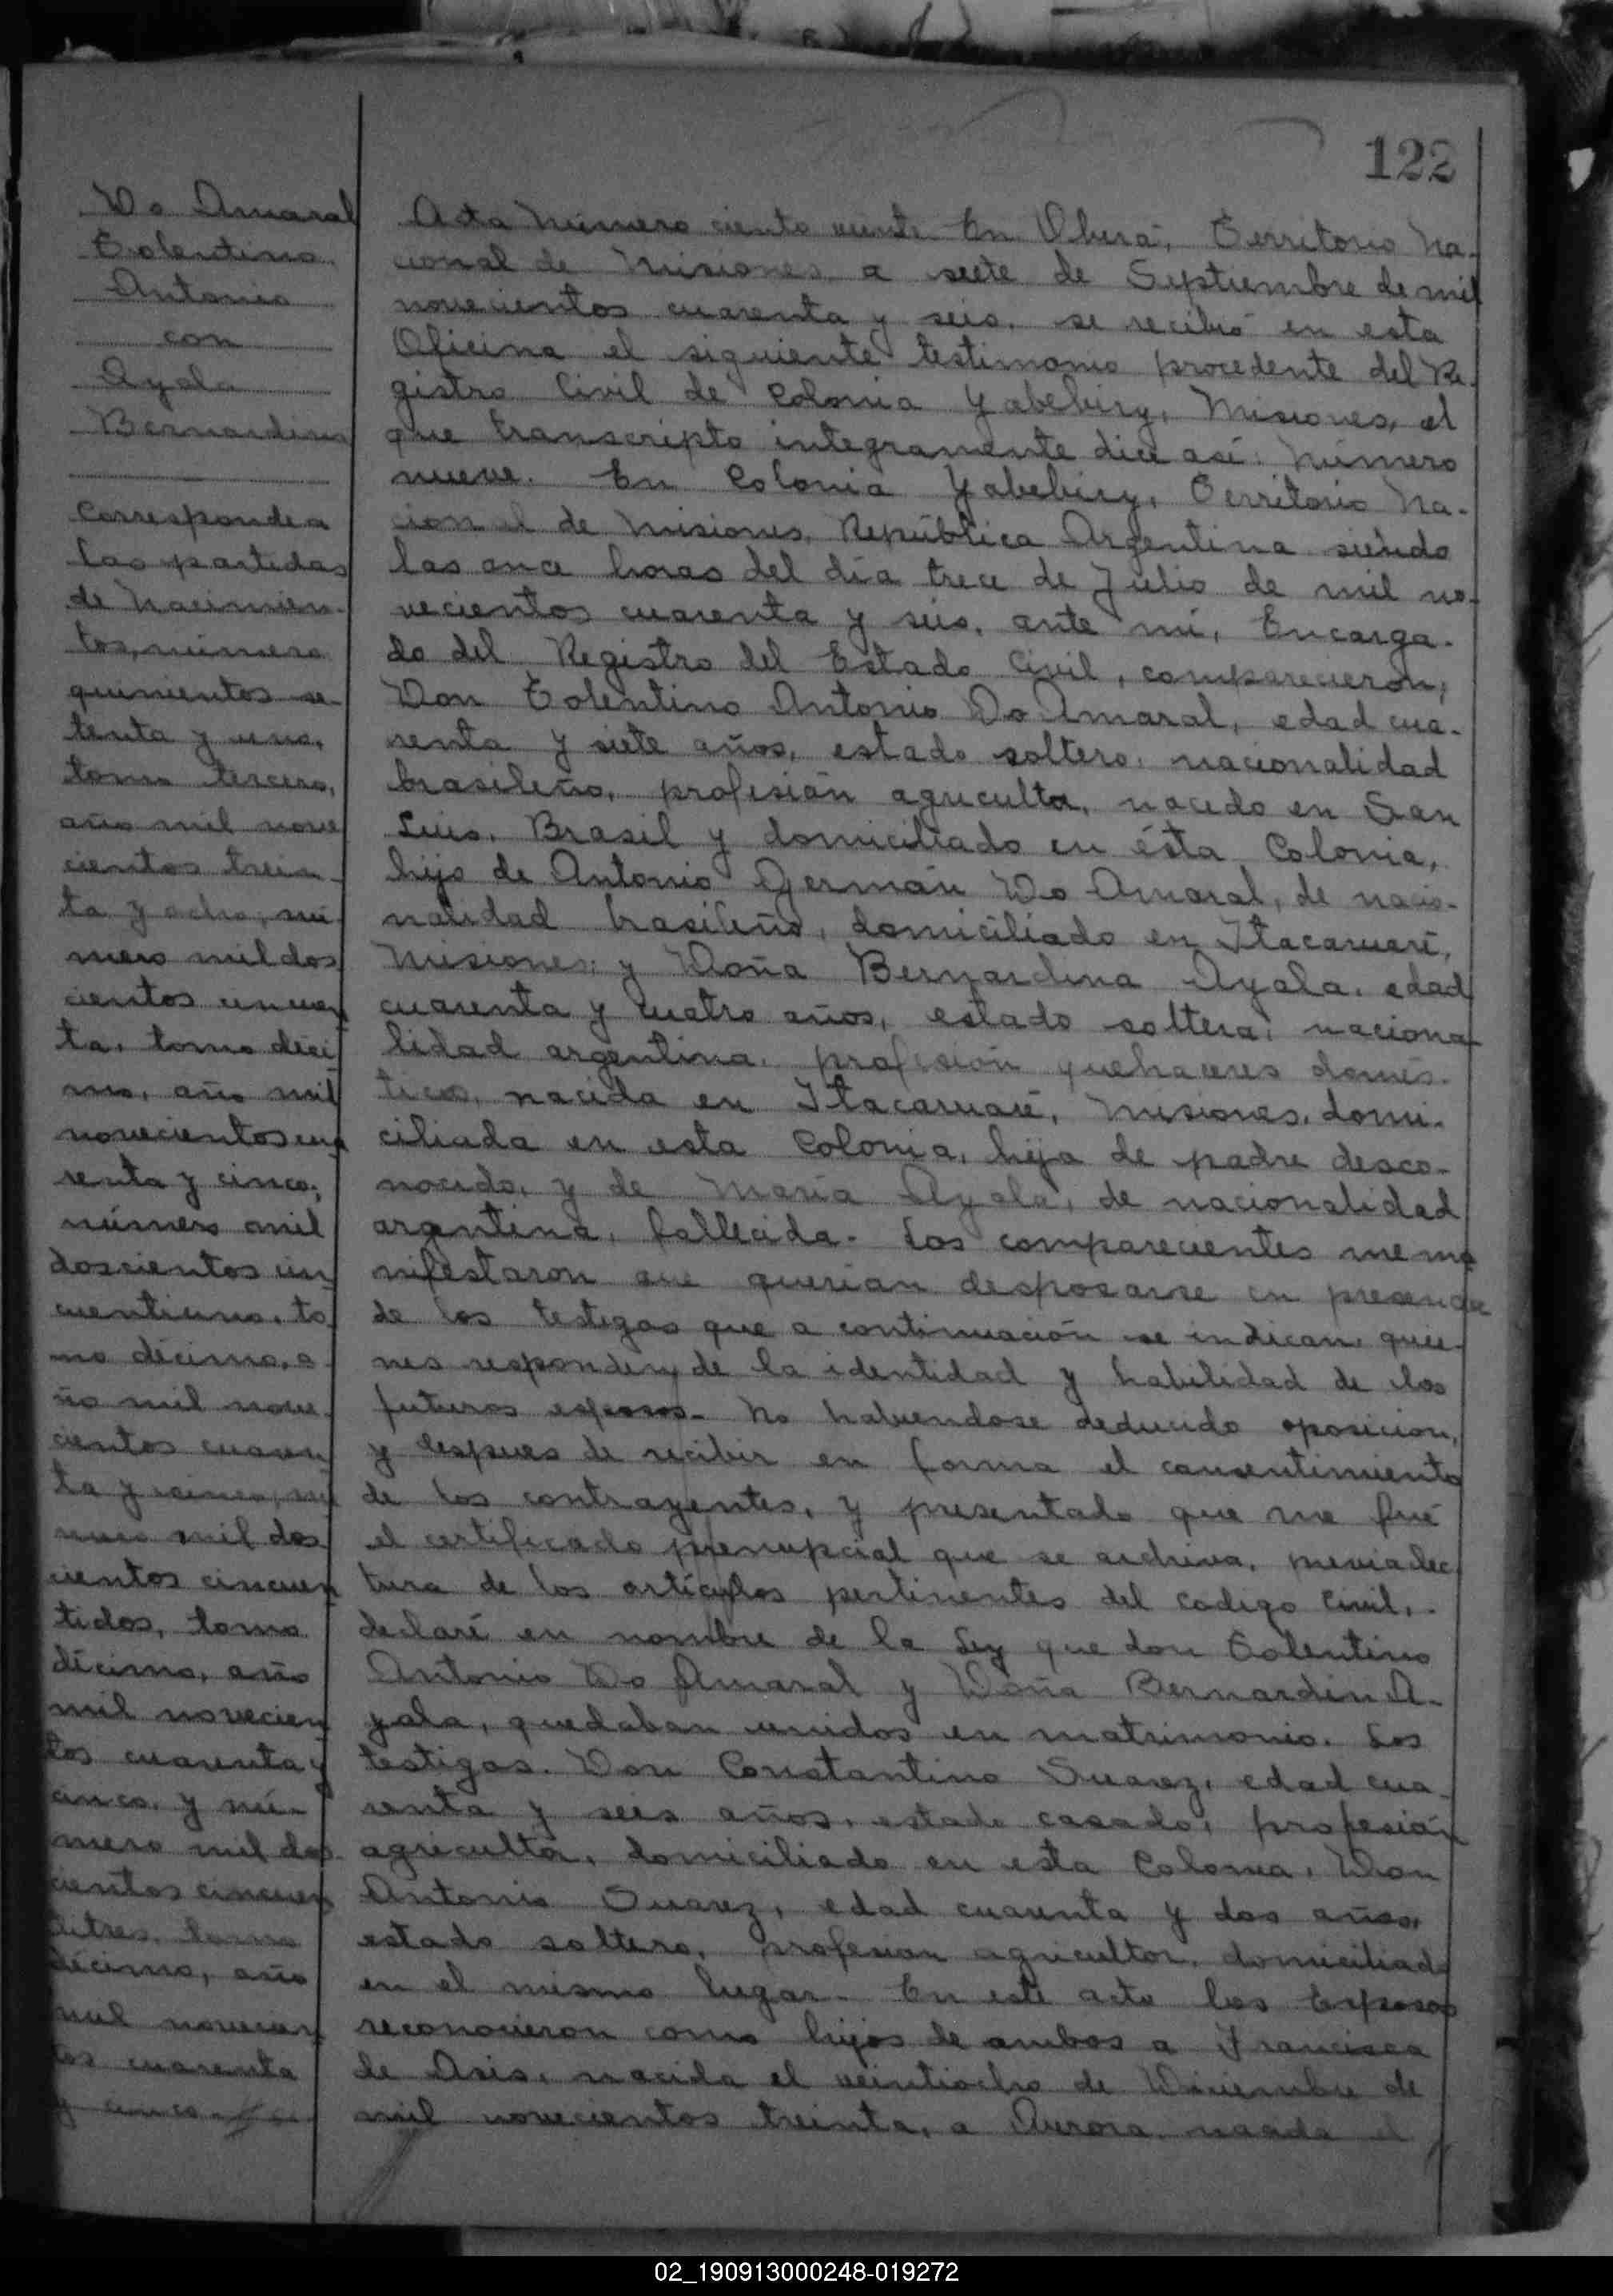 122
Do Amaral
Tolentino
Antonio
con
Ayala
Bernardina
Corresponde a
las partidas
de Nacimien-
tos, número
quinientos se-
tenta y uno,
tomo tercero,
año mil nove
cientos trein-
ta y ocho, nú-
mero mil dos
cientos cincuen
ta, tomo déci
mo, año mil
novecientos cua
renta y cinco;
número mil
doscientos cin
cuentiuno, to
mo décimo, a
ño mil nove-
cientos cuaren
ta y cinco, nú
mero mil dos
cientos cincuen
tidos, tomo
décimo, año
mil novecien
tos cuarenta y
cinco, y nú-
mero mil dos
cientos cincuen
titres, tomo
décimo, año
mil novecien
tos cuarenta
y cinco
Acta Número ciento veinte. En Oberá, Territorio Na-
cional de Misiones, a siete de Septiembre de mil
novecientos cuarenta y seis, se recibió en esta
Oficina el siguiente testimonio procedente del Re-
gistro Civil de Colonia Yabebiry, Misiones, el
que transcripto integramente dice así: Número
nueve. En Colonia Yabebiry, Territorio Na-
cional de Misiones, República Argentina siendo
las once horas del día trece de Julio de mil no-
vecientos cuarenta y seis, ante mí, Encarga-
do del Registro del Estado Civil, comparecieron;
Don Tolentino Antonio Do Amaral, edad cua-
renta y siete años, estado soltero, nacionalidad
brasileño, profesión agricultor, nacido en San
Luis, Brasil y domiciliado en ésta Colonia,
hijo de Antonio Germán Do Amaral, de nacio-
nalidad brasileño, domiciliado en Itacaruaré,
Misiones; y Doña Bernardina Ayala, edad
cuarenta y cuatro años, estado soltera, naciona
lidad argentina, profesión quehaceres domés-
ticos, nacida en Itacaruaré, Misiones, domi-
ciliada en esta Colonia, hija de padre desco-
nocido, y de María Ayala, de nacionalidad
argentina, fallecida. Los comparecientes me ma
nifestaron que querían desposarse en presencia
de los testigos que a continuación se indican, quie-
nes responden de la identidad y habilidad de los
futuros esposos. No habiendose deducido oposicion,
y despues de recibir en forma el consentimiento
de los contrayentes, y presentado que me fué
el certificado prenupcial que se archiva, previa lec
tura de los artículos pertinentes del codigo Civil,
declaré en nombre de la Ley que don Tolentino
Antonio Do Amaral y Doña Bernardin A-
yala, quedaban unidos en matrimonio. Los
testigos. Don Constantino Suarez, edad cua-
renta y seis años, estado casado, profesión
agricultor, domiciliado en esta Colonia, Don
Antonio Suarez, edad cuarenta y dos años,
estado soltero, profesion agricultor, domiciliado
en el mismo lugar. En este acto los Esposos
reconocieron como hijos de ambos a Francisca
de Asis, nacida el veintiocho de Diciembre de
mil novecientos treinta, a Aurora, nacida el
02_190913000248-019272